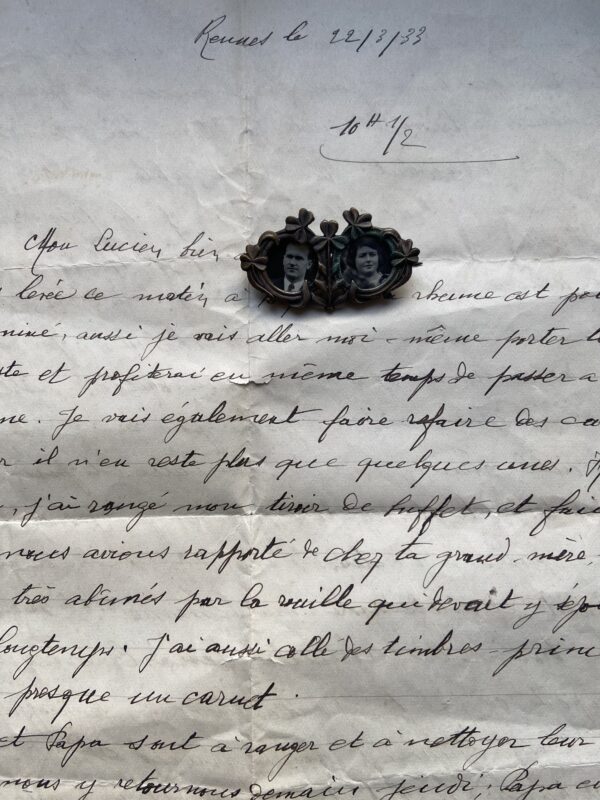 Rennes le 22/3/33
10 H 1/2
Mon Lucien bien
levée ce matin a rhume est
miné, aussi je vais aller moi-même porter
et profiterai en même temps de passer a
Je vais également faire refaire des
il n'en reste plus que quelques unes.
j'ai rangé mon tiroir de buffet, et
nous avions rapporté de chez ta grand-mère,
très abîmés par la rouille qui devait y
longtemps. J'ai aussi collé des timbres-prim
presque un carnet.
et Papa sont à ranger et à nettoyer leur
nous y retournons demain jeudi. Papa